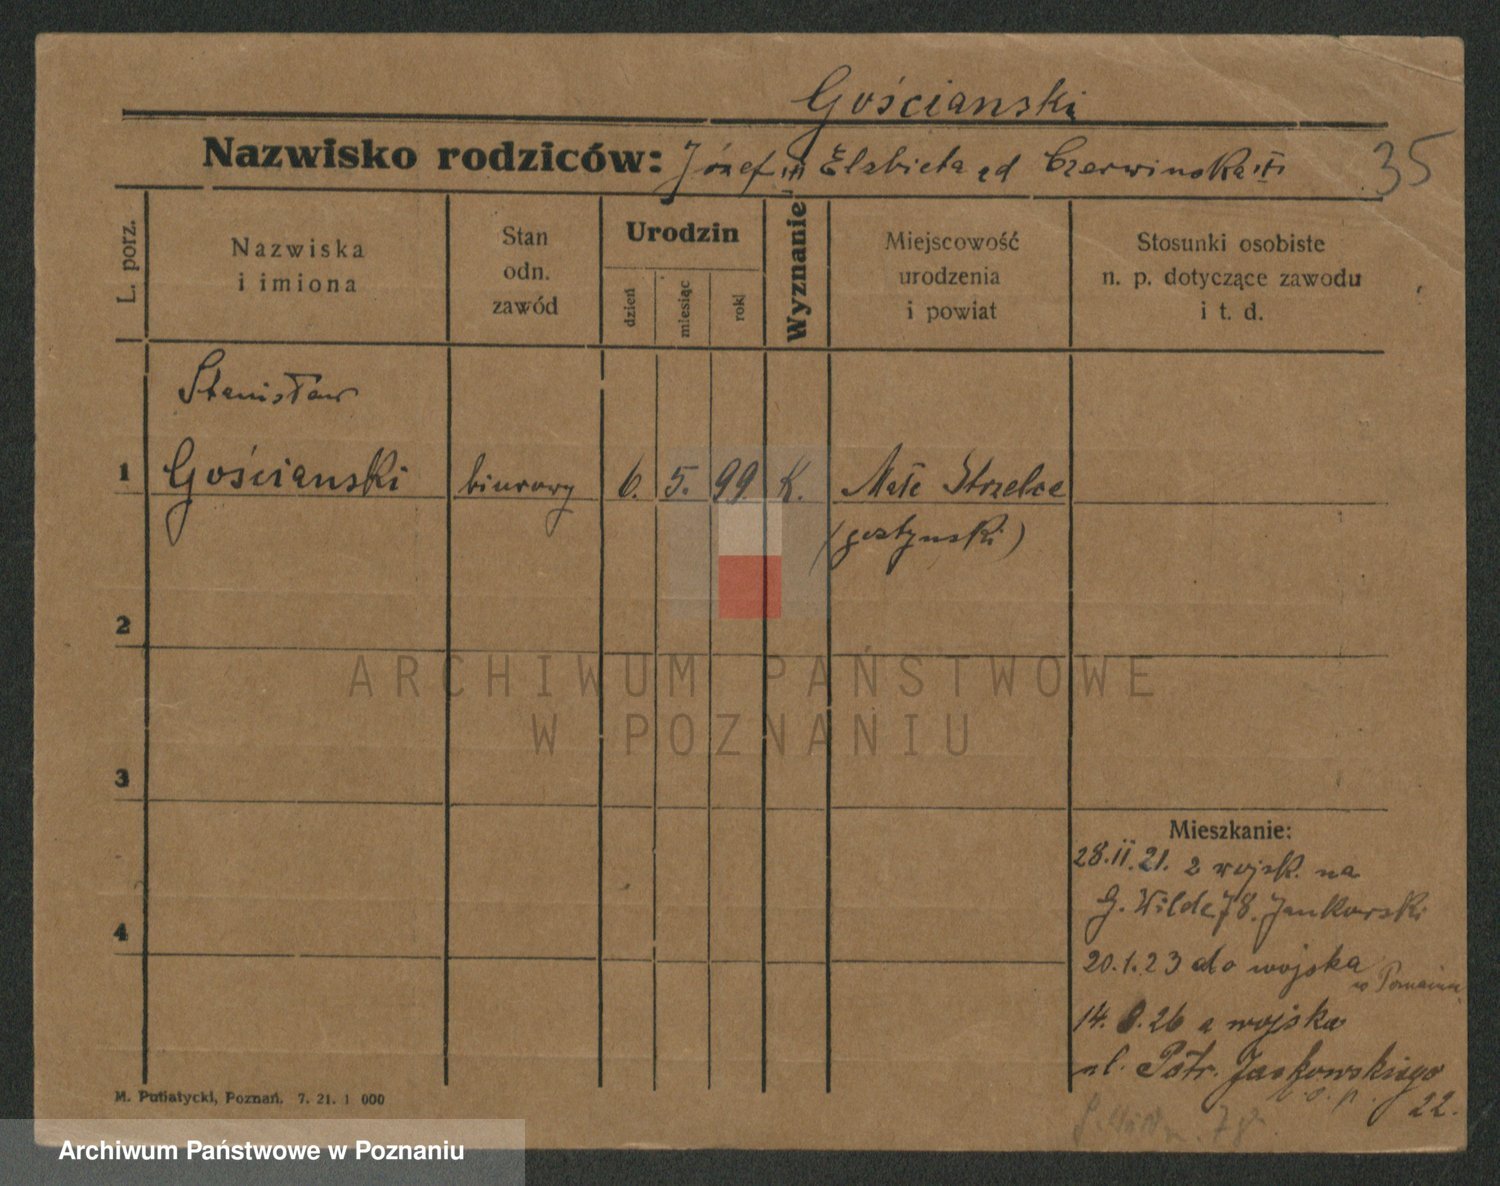 Gościanski
35
Nazwisko rodziców: Józef Elzbieta Czerwinska
L. porz.
Nazwiska
i imiona
Stan
odn.
zawód
Urodzin
dzień
miesiąc
rok
Wyznanie
Miejscowość
urodzenia
i powiat
Stosunki osobiste
n. p. dotyczące zawodu
i t. d.
Stanisław
1 Gościanski biurowy 6. 5. 99. K. Małe Strzelce
(gostynski)
2
ARCHIWUM PAŃSTWOWE
W POZNANIU
3
Mieszkanie:
28.II.21. z wojsk. na
G. Wilde 78. Jankowski
4
20.1.23 do wojska
w Poznaniu
14. 8. 26 z wojska
ul. Piotr.
22.
M. Putiatycki, Poznań. 7. 21. 1 000
Archiwum Państwowe w Poznaniu